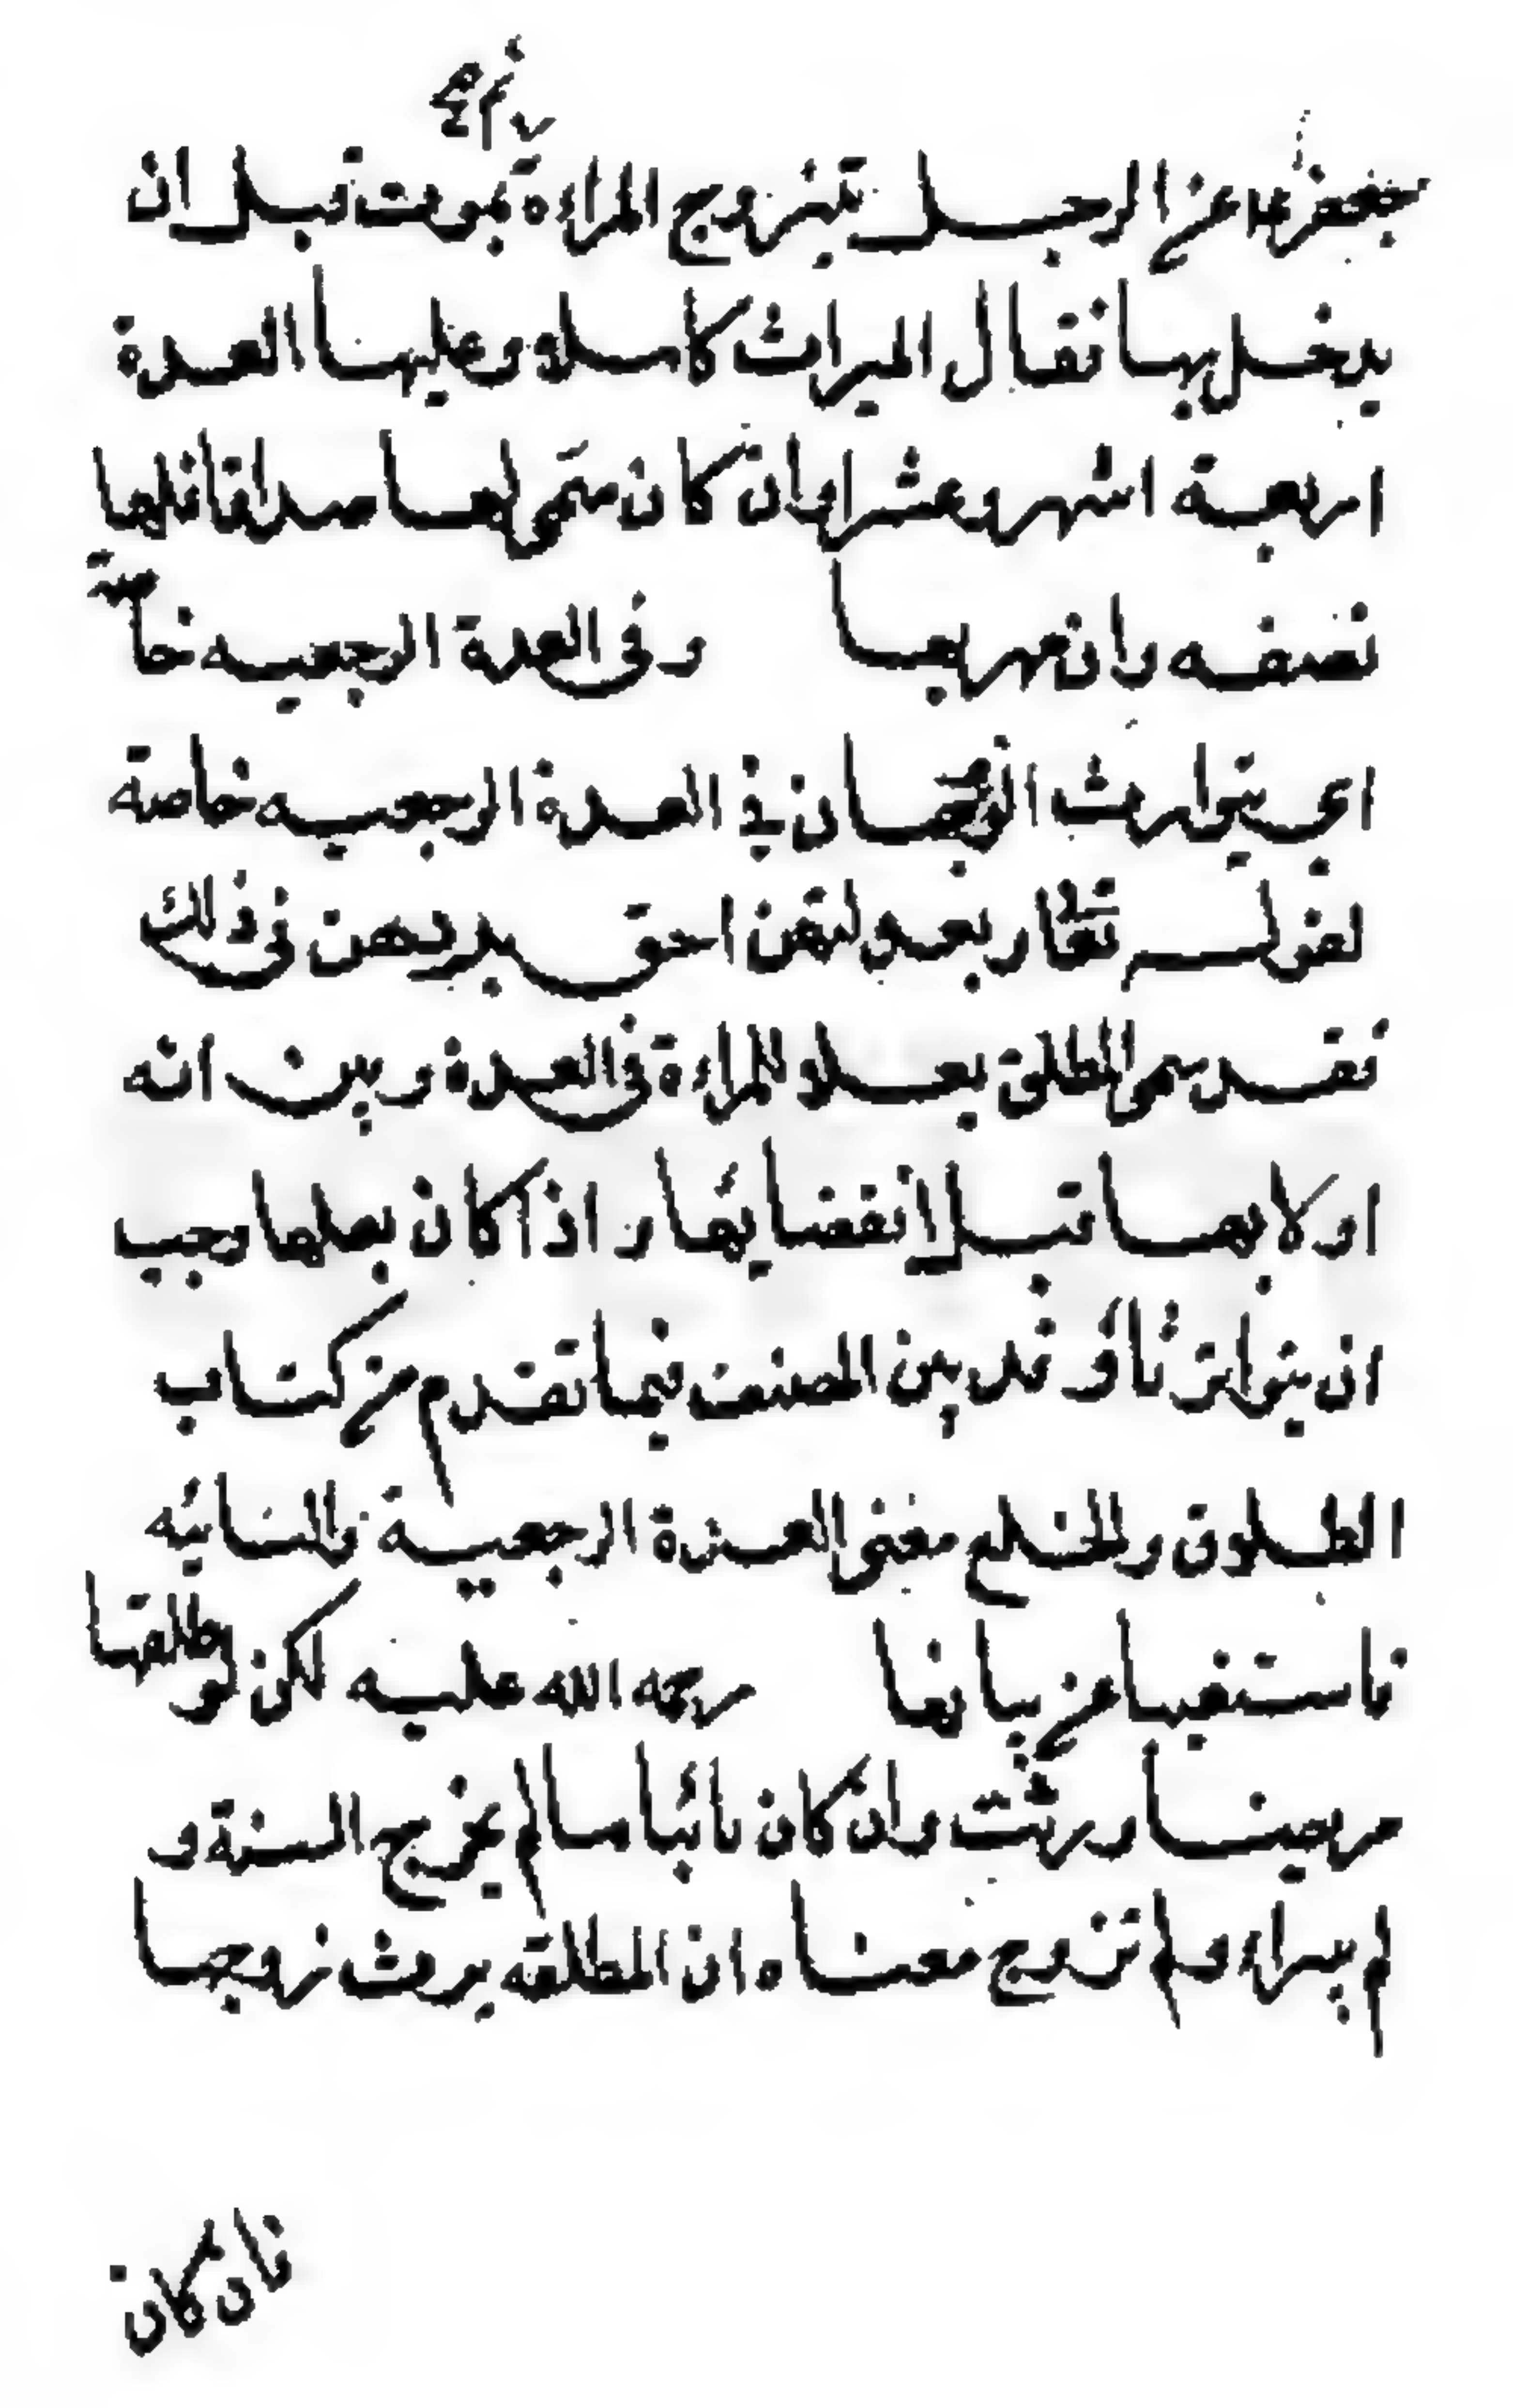 جعفر ع عن الرجل يتزوج المراءة يموت قبل ان
يدخل بها فقال الميراث كاملا وعليها العدة
اربعة اشهر وعشرا وان كان سمى لها صداقا فلها
نصفه وان مهر بها وفى العدة الرجعيه خاصة
اى يتوارث الزوجان فى العدة الرجعيه خاصة
لقوله تعالى وبعولتهن احق بردهن فى ذلك
فقد سمى المطلق بعلا للمراءة فى العدة وبين انه
اولا بها قبل انقضايها و اذا كان بعلها وجب
ان يتوارثا و قد بين المصنف فيما تقدم من كتاب
الطلاق والخلع معنى العدة الرجعية والبائنه
فاستغنينا عن بيانها رحمه الله عليه لكن لو طلقها
مريضا ورثت وان كان بائنا ما لم يخرج السنة و
لم يبراء و لم تزوج معناه ان المطلقه يرث زوجها
فان كان